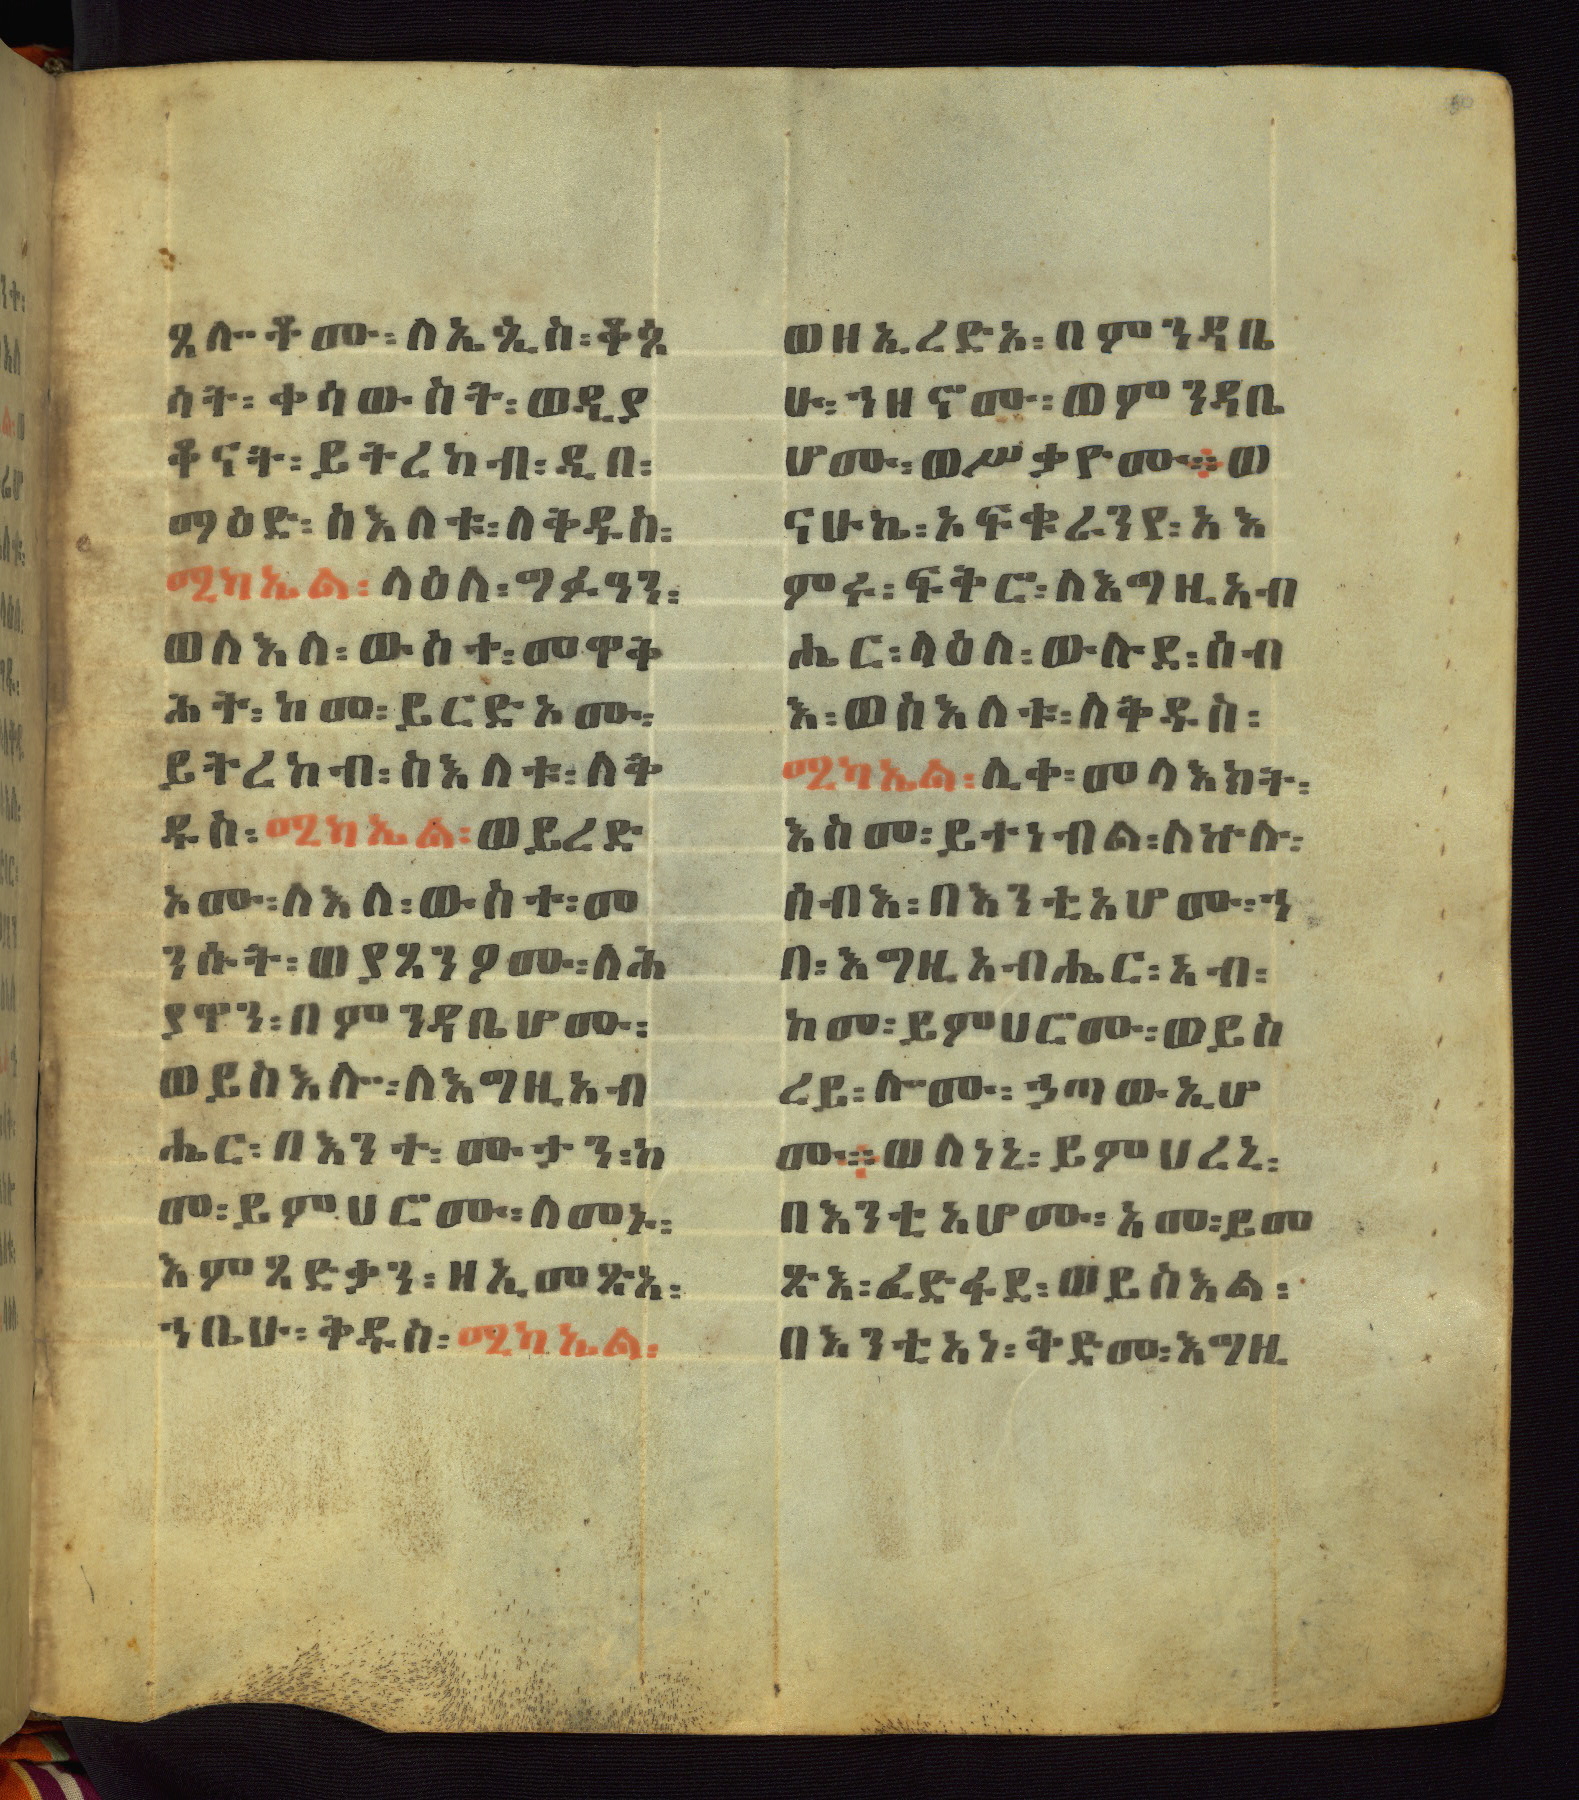 ጸሎቶሙ፡ ለኤጲስ፡ ቆጶ
ሳት፡ ቀሳውስት፡ ወዲያ
ቆናት፡ ይትረከብ፡ ዲበ፡
ማዕድ፡ ስእለቱ፡ ለቅዱስ፡
ሚካኤል፡ ላዕለ፡ ግፉዓን፡
ወለእለ፡ ውስተ፡ መዋቅ
ሕት፡ ከመ፡ ይርድአሙ፡
ይትረከብ፡ ስእለቱ፡ ለቅ
ዱስ፡ ሚካኤል፡ ወይረድ
አሙ፡ ለእለ፡ ውስተ፡ መ
ንሱት፡ ወያጸንዖሙ፡ ለሕ
ያዋን፡ በምንዳቤሆሙ፡
ወይስእሎ፡ ለእግዚአብ
ሔር፡ በእንተ፡ ሙታን፡ ከ
መ፡ ይምሀሮሙ፡ ለመኑ፡
እምጻድቃን፡ ዘኢመጽአ፡
ኀቤሁ፡ ቅዱስ፡ ሚካኤል፡
ወዘኢረድኦ፡ በምንዳቤ
ሁ፡ ኀዘኖሙ፡ ወምንዳቤ
ሆሙ፡ ወሥቃዮሙ። ወ
ናሁኬ፡ አፍቁራንየ፡ አእ
ምሩ፡ ፍቅሮ፡ ለእግዚአብ
ሔር፡ ላዕለ፡ ውሉደ፡ ሰብ
እ፡ ወስእለቱ፡ ለቅዱስ፡
ሚካኤል፡ ሊቀ፡ መላእክት፡
እስመ፡ ይተነብል፡ ለኵሉ፡
ሰብእ፡ በእንቲአሆሙ፡ ኀ
በ፡ እግዚአብሔር፡ አብ፡
ከመ፡ ይምሀሮሙ፡ ወይስ
ረይ፡ ሎሙ፡ ኃጣውኢሆ
ሙ። ወለነኒ፡ ይምሀረኒ፡
በእንቲአሆሙ፡ አመ፡ ይመ
ጽእ፡ ፈድፋደ፡ ወይስእል፡
በእንቲአነ፡ ቅድመ፡ እግዚ